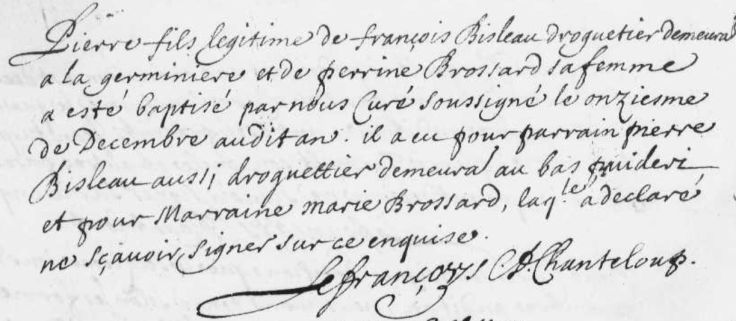 Pierre fils legitime de françois Bisleau droguetier demeurāt
a la germiniere et de perrine Brossard sa femme
a esté baptisé par nous Curé soussigné le onziesme
de Decembre audit an. il a eu pour parrain pierre
Bisleau aussi droguettier demeurāt au bas
et pour Marraine marie Brossard, laqle a declaré
ne sçavoir signer sur ce enquise.
Lefrançoys C. d. Chanteloup.